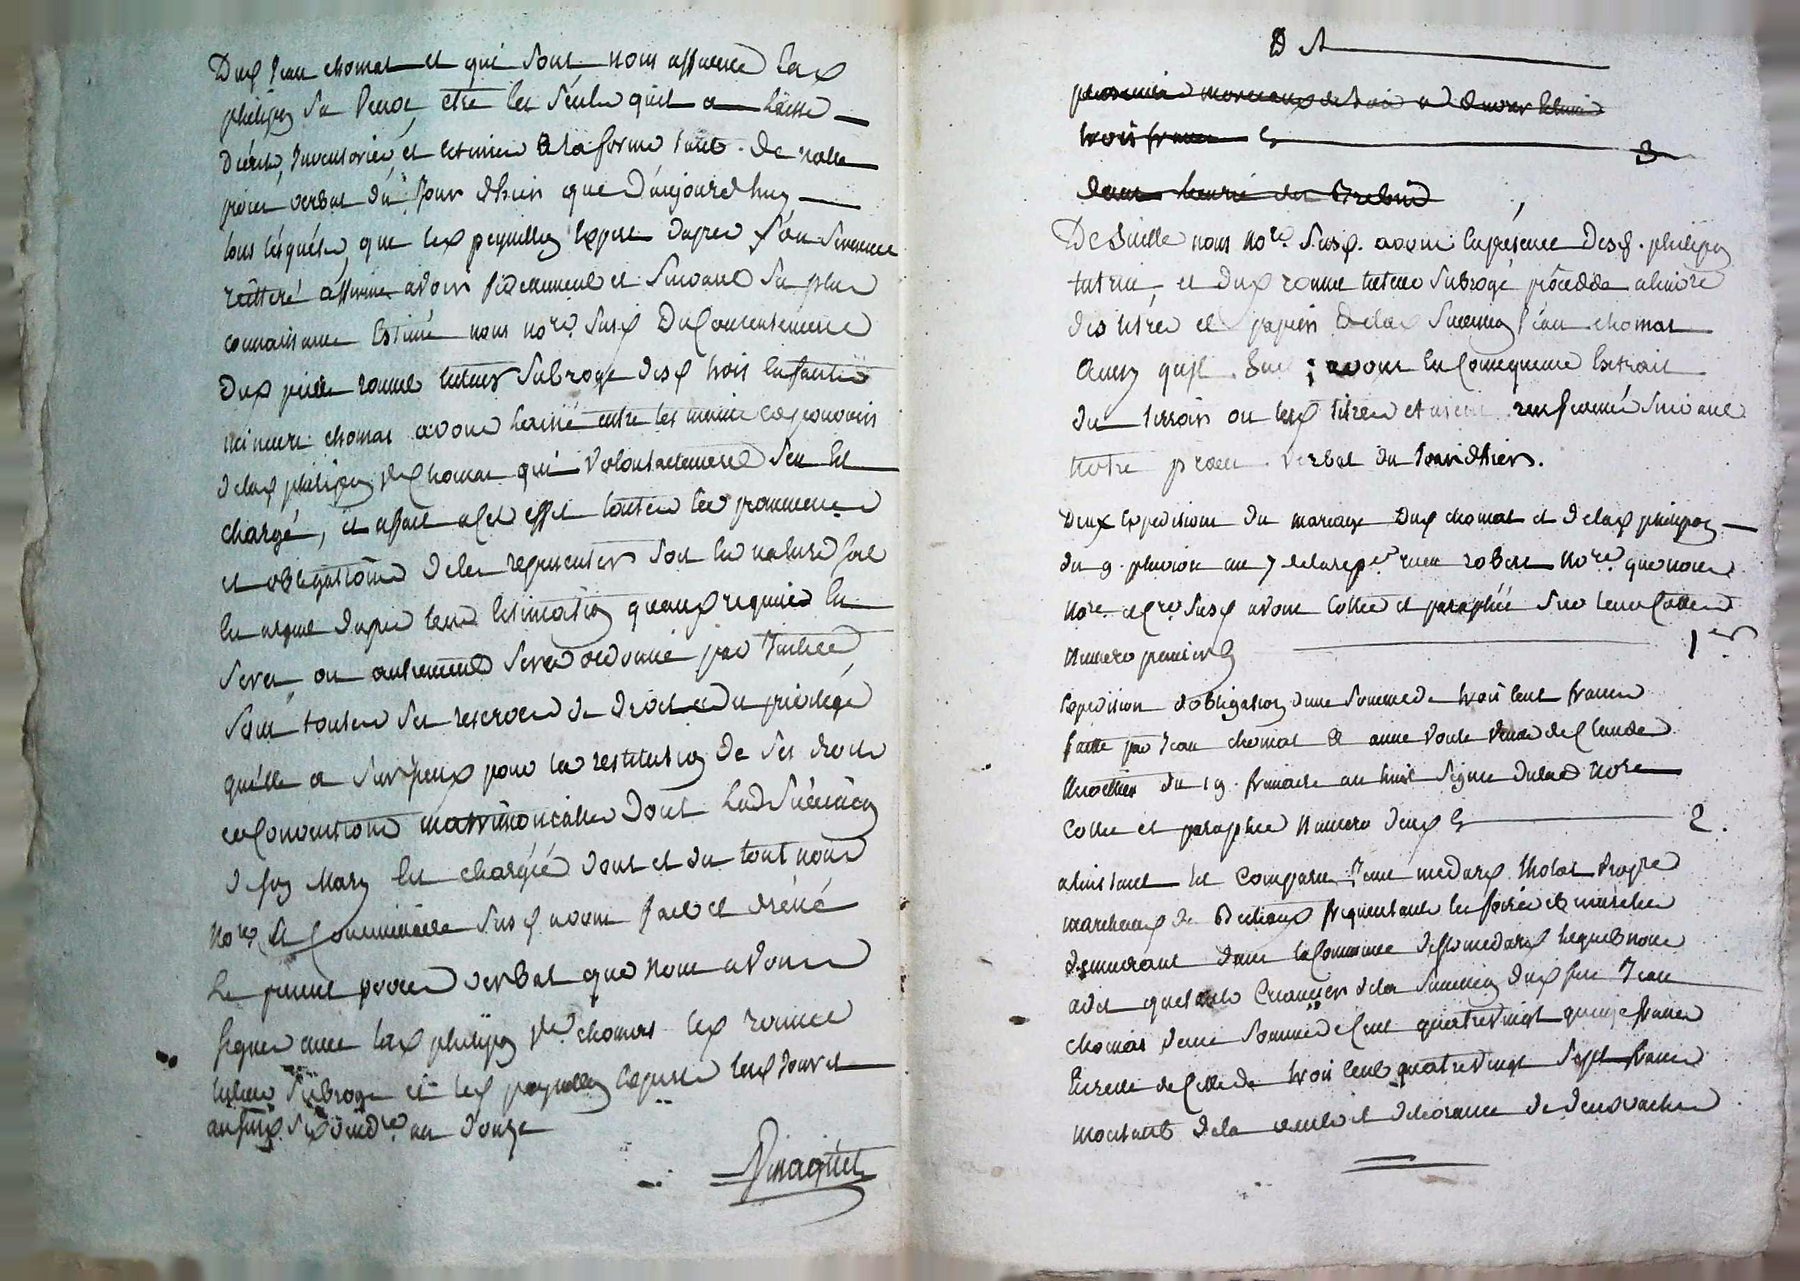 Dud Jean chomat et qui sont nous assurence lad
philipon sa veuve, etre les seules quil a laissé
Décrits, Inventoriés, et Estimés a la forme tant de notre
procès verbal du Jour d'hier que d'aujourd'huy
tous lesquels, que led peyrillon expert dapres son serment
reitteré affirme avoir fidellement et suivant sa plus
connaissance Estimé nous nore susd Du Consentement
dud pierre ronne tuteur subrogé desd trois Enfants
mineurs chomat avons laissé entre les mains et pouvoirs
delad philipon ve Chomat qui volontairement sen Est
chargé, et affait a cet effet toutes les promesses
et obligations de les representer soit en nature soit
En argent dapres leur Estimation quand requise En
sera, ou autrement sera ordonné par Justice
sous toutes ses reserves de droit et du privilège
qu'elle a sur yceux pour la restitution de ses droits
et Conventions matrimonialles Dont lad succession
de son Mary Est chargée dont et du tout nous
nore et Commissaire susd avons fait et dréssé
Le present procès verbal que nous avons
signé avec lad philipon ve chomat led ronne
tuteur subrogé et led peyrillon expert lesd Jour et
an susd six vendre an douze
Pinaquet
D A
premier morceaux de bois
trois francs 3
dans
De suitte nous nore susd. avons En presence desd. philipon
tutrice, et dud ronne tuteur subrogé procédé a linvre
des titres et papiers de lad succession Jean chomat
Ainsi quil suit; avons En Consequence Extrait
du tirroir ou lesd titres etaient renfermés suivant
notre procès verbal du Jour d'hier.
Deux Expeditions du mariage Dud chomat et delad philipon
du 9. pluviose an 7 dela rep.e recu robert nore que nous
nore et Cre susd avons Cottés et paraphés sous leur Cotte
Numero premier 1er
Expedition d'obligation dune somme de trois Cent francs
faitte par Jean chomat a anne voute veuve de Claude
du 19. frimaire an huit signe dulac nore
Cottée et paraphée Numero deux 2.
a linstant Est Comparu Jean medard tholot
marchand de Bestiaux frequentant les foires et marchés
demeurant dans la Commune de St medard lequel nous
a dit quil est Creancier dela succession dud feu Jean
chomat dune somme de Cent quatrevingt quinze francs
En reste de Celle de trois Cent quatrevingt sept francs
montant dela vente et delivrance de deux vaches